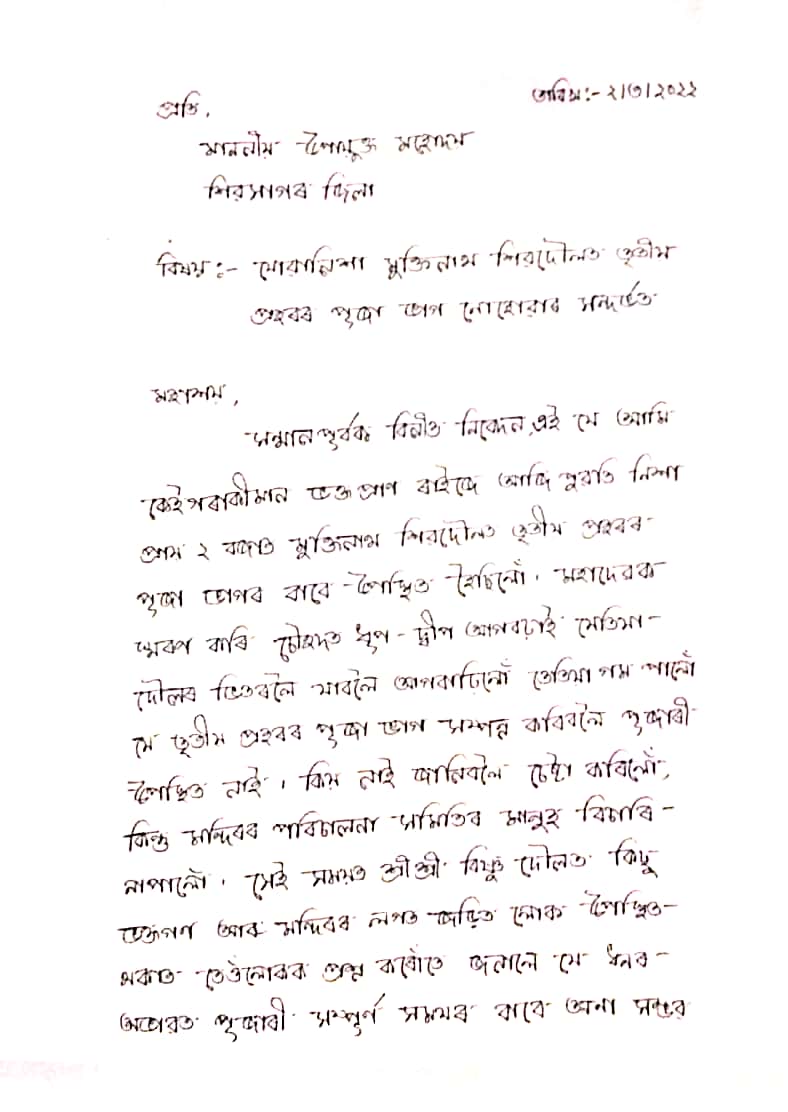 তাৰিখ:- ২/৩/২০২২
প্ৰতি,
মাননীয় উপায়ুক্ত মহোদয়
শিৱসাগৰ জিলা
বিষয়:- যোৱানিশা মুক্তিনাথ শিৱদৌলত তৃতীয়
প্ৰহৰৰ পূজা ভাগ নোহোৱাৰ সন্দৰ্ভত
মহাশয়,
সন্মানপূৰ্বক বিনীত নিবেদন এই যে আমি
কেইগৰাকীমান ভক্তপ্ৰাণ ৰাইজে আজি পুৱতি নিশা
প্ৰায় ২ বজাত মুক্তিনাথ শিৱদৌলত তৃতীয় প্ৰহৰৰ
পূজা ভাগৰ বাবে উপস্থিত হৈছিলোঁ। মহাদেৱক
স্মৰণ কৰি চৌহদত ধূপ-দ্বীপ আগবঢ়াই যেতিয়া
দৌলৰ ভিতৰলৈ যাবলৈ আগবাঢ়িলোঁ তেতিয়া গম পালোঁ
যে তৃতীয় প্ৰহৰৰ পূজা ভাগ সম্পন্ন কৰিবলৈ পূজাৰী
উপস্থিত নাই। কিয় নাই জানিবলৈ চেষ্টা কৰিলোঁ,
কিন্তু মন্দিৰৰ পৰিচালনা সমিতিৰ মানুহ বিচাৰি
নাপালোঁ। সেই সময়ত শ্ৰীশ্ৰী বিষ্ণু দৌলত কিছু
ভক্তগণ আৰু মন্দিৰৰ লগত জড়িত লোক উপস্থিত
থকাত তেওঁলোকক প্ৰশ্ন কৰোঁতে জনালে যে ধনৰ
অভাৱত পূজাৰী সম্পূৰ্ণ সময়ৰ বাবে অনা সম্ভৱ